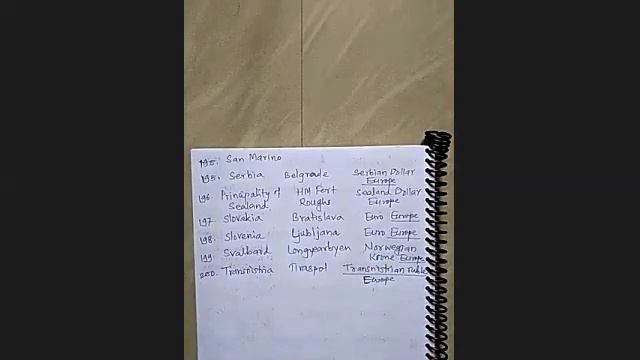 195. San Marino
195. Serbia Belgrade Serbian Dollar
Europe
196. Principality of HM Fort Sealand Dollar
Sealand Roughs Europe
197. Slovakia Bratislava Euro Europe
198. Slovenia Ljubljana Euro Europe
199. Svalbard Longyearbyen Norwegian
Krone Europe
200. Transnistria Tiraspol Transnistrian ruble
Europe